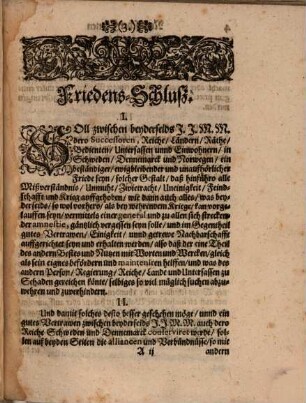 (3.)
Friedens-Schluß.
I.
SOll zwischen beyderseids J. J. M. M.
dero Successoren, Reiche, Ländern, Räthe,
Bedienten, Untersassen und Einwohnern, in
Schweden, Dennemarck und Norwegen, ein
beständiger, ewigbleibender und unauffhörlicher
Friede seyn, solcher Gestalt, daß hinführo alle
Mißverständnis, Unmuht, Zwietracht, Uneinigkeit, Feind-
schafft und Krieg auffgehoben, wie dann auch alles, was bey-
derseids, so wol vorhero, als bey währendem Kriege, kan vorge-
lauffen seyn, vermittels einer general und zu allen sich strecken-
der amnestie, gäntzlich vergessen seyn solle, und im Gegentheil
gutes Vertrawen, Einigkeit, und getrewe Nachbarschafft
auffgerichtet seyn und erhalten werden, also daß der eine Theil
des andern Bestes und Nutzen mit Worten und Wercken, gleich
als sein eigenes befördern und mainteniren helffen, und was des
andern Person, Regierung, Reiche, Lande und Untersassen zu
Schaden gereichen könte, selbiges so viel müglich suchen abzu-
wehren und zuverhindern.
II.
Und damit solches desto besser geschehen möge, und ein
gutes Vertrawen zwischen beyderseids J. J. M. M. auch dero
Reiche Schweden und Dennemarck conserviret werde, sol-
len auff beyden Seiten die alliancen und Verbündnüsse, so mit
A ij andern